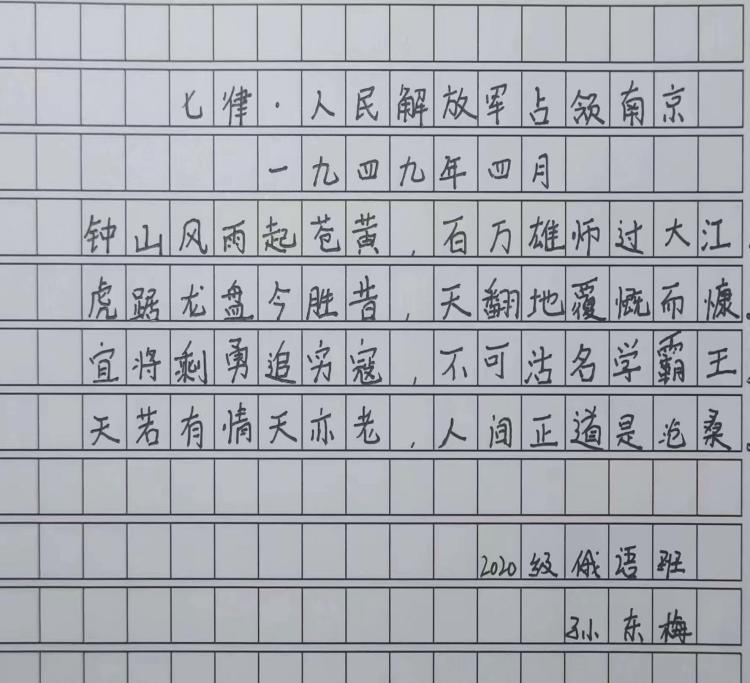 七律·人民解放军占领南京
一九四九年四月
钟山风雨起苍黄,百万雄师过大江.
虎踞龙盘今胜昔,天翻地覆慨而慷。
宜将剩勇追穷寇,不可沽名学霸王。
天若有情天亦老,人间正道是沧桑。
2020级俄语班
孙东梅